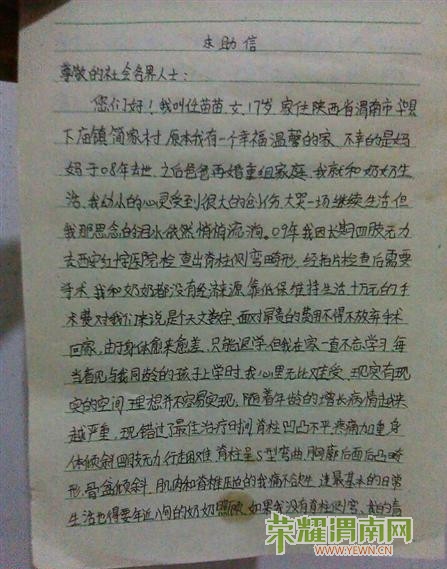 求助信
尊敬的社会各界人士:
您们好!我叫任苗苗,女,17岁,家住陕西省渭南市华县
下庙镇简家村,原本我有一个幸福温馨的家,不幸的是妈
妈于08年去世,之后爸爸再婚重组家庭,我就和奶奶生
活,我幼小的心灵受到很大的创伤,大哭一场继续生活,但
我那思念的泪水依然悄悄流淌。09年我因长期四肢无力
去西安红按医院检查出脊柱侧弯畸形,经拍片检查后需要
手术,我和奶奶都没有经济来源,靠低保维持生活,十万元的手
术费对我们来说是个天文数字,面对昂贵的费用不得不放弃手术
回家,由于身体愈来愈差,只能退学,但我在家一直不忘学习,每
当看见与我同龄的孩子上学时,我心里无比难受,现实有现
实的空间,理想并不容易实现,随着年龄的增长病情越来
越严重,现错过了最佳治疗时间,脊柱凹凸不平,疼痛加重,身
体倾斜,四肢无力,行走困难,脊柱呈S型弯曲,胸廓后面后凸畸
形,骨盆倾斜,肌肉和脊椎压迫的我痛不欲生,连最基本的日常
生活也得要年近八旬的奶奶照顾,如果我没有脊柱侧弯,我的青
荣耀渭南网
WWW.YEWN.CN